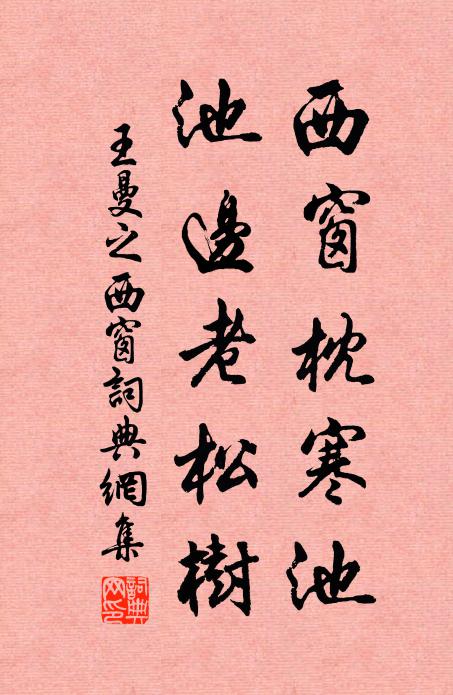 西窗枕寒池
池邊老松樹
王曼之西窗詞典網集
詞典網印